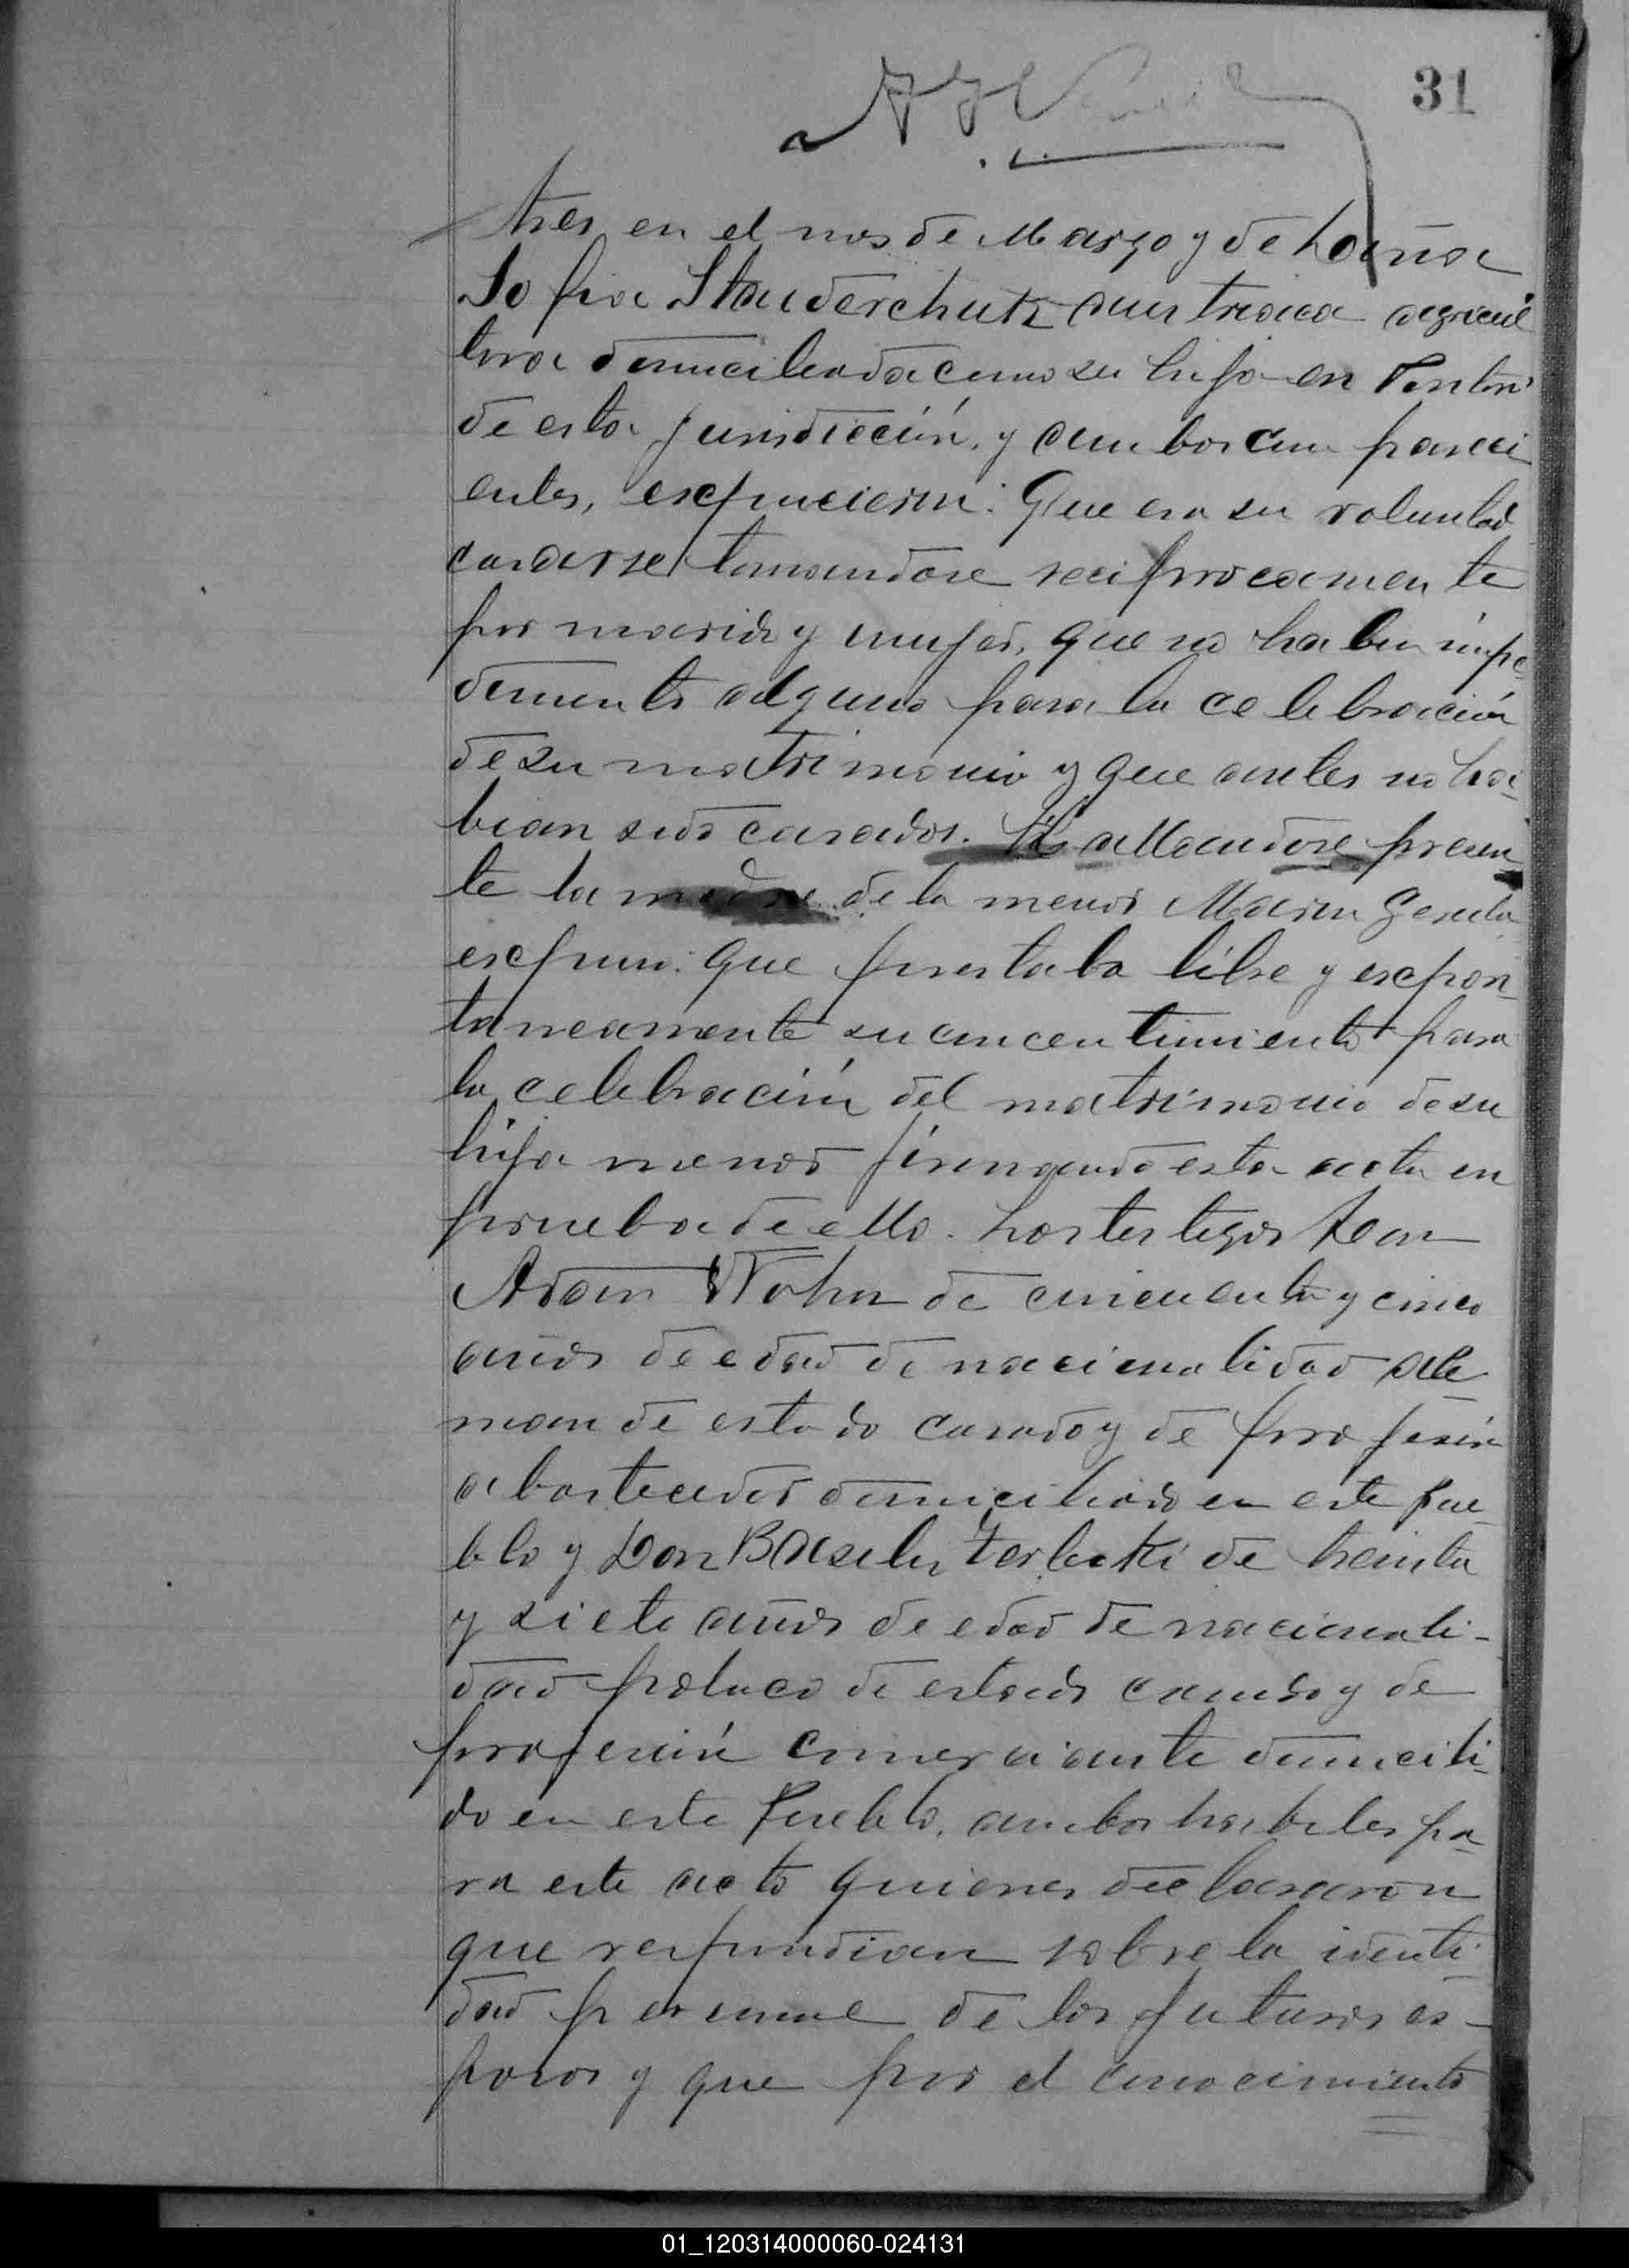 31
tres en el mes de Marzo y de Doña
Sofia Stauderchutz austriaca agricul
tora domiciliada como su hija en
de esta jurisdicción, y ambos compareci
entes, espucieron: Que era su voluntad
casarse tomandose reciprocamente
por marido y mujer, que no habia impe-
dimento alguno para la celebración
de su matrimonio y que antes no ha-
bian sido casados. Hallandose presen
te la madre de la menor Maria
espuso: que prestaba libre y espon-
taneamente su concentimiento para
la celebración del matrimonio de su
hija menor firmando esta acta en
prueba de ello. Los testigos Don
Adam Wohn de cincuenta y cinco
años de edad de nacionalidad ale-
man de estado casado y de profesión
abastecedor domiciliado en este pue-
blo y Don Basilio de treinta
y siete años de edad de nacionali-
dad polaco de estado casado y de
profesión comerciante domicili-
do en este Pueblo, ambos habiles pa-
ra este acto quienes declararon
que respondian sobre la identi-
dad personal de los futuros es-
posos y que por el conocimiento
01_120314000060-024131